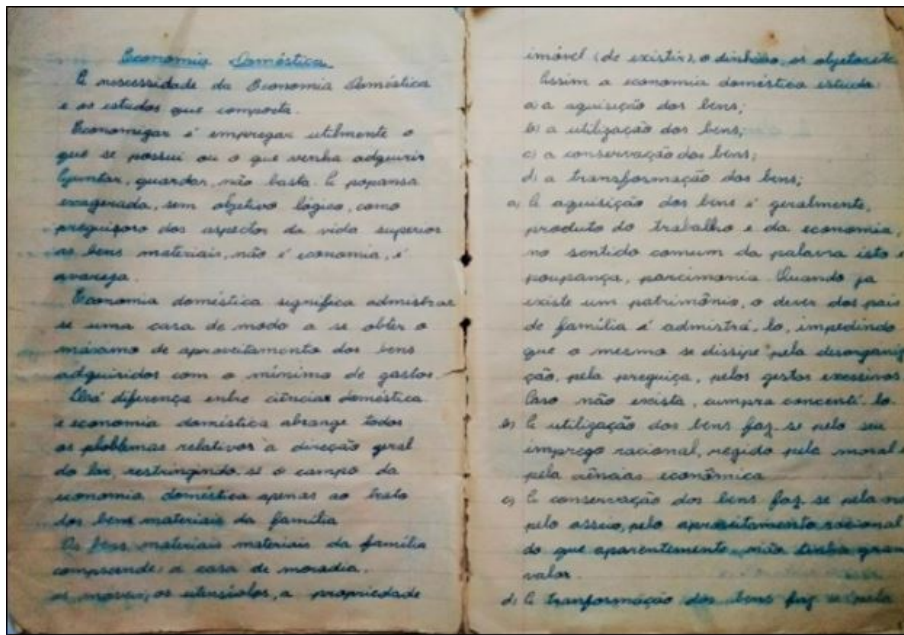 Economia Doméstica
A necessidade da Economia Doméstica
e os estudos que comporta.
Economizar é empregar utilmente o
que se possui ou o que venha adquirir
Ajuntar, guardar, não basta. A popansa
exagerada, sem objetivo lógico, como
preguisoso dos aspectos da vida superior
os bens materiais, não é economia, é
avareza.
Economia doméstica significa admistrar
se uma casa de modo a se obter o
máximo de aproveitamento dos bens
adquiridos com o mínimo de gastos.
diferença entre ciências doméstica
e economia doméstica abrange todos
os problemas relativos à direção geral
do lar, restringindo-se o campo da
economia doméstica apenas ao trato
dos bens materiais da família
Os bens materiais materiais da família
compreende: a casa de moradia.
os móveis, os utensiolos, a propriedade
imóvel (de existir), o dinheiro, os objetos etc
Assim a economia doméstica estuda:
a) a aquisição dos bens;
b) a utilização dos bens;
c) a conservação dos bens;
d) a transformação dos bens;
a) A aquisição dos bens é geralmente,
produto do trabalho e da economia,
no sentido comum da palavra isto é
poupança, parcimonia. Quando ja
existe um patrimônio, o dever dos pais
de família é admistrá-lo, impedindo
que o mesmo se dissipe pela desorganiz
ção, pela preguiça, pelos gestos excessivos
Caso não exista, cumpra
b) A utilização dos bens faz-se pelo seu
imprego racional, regido pela moral e
pela econômica
c) A conservação dos bens faz-se pela
pelo asseio, pelo aproveitamento racional
do que aparentemente não tinha gran
valor.
d) A tranformação dos bens faz se pela